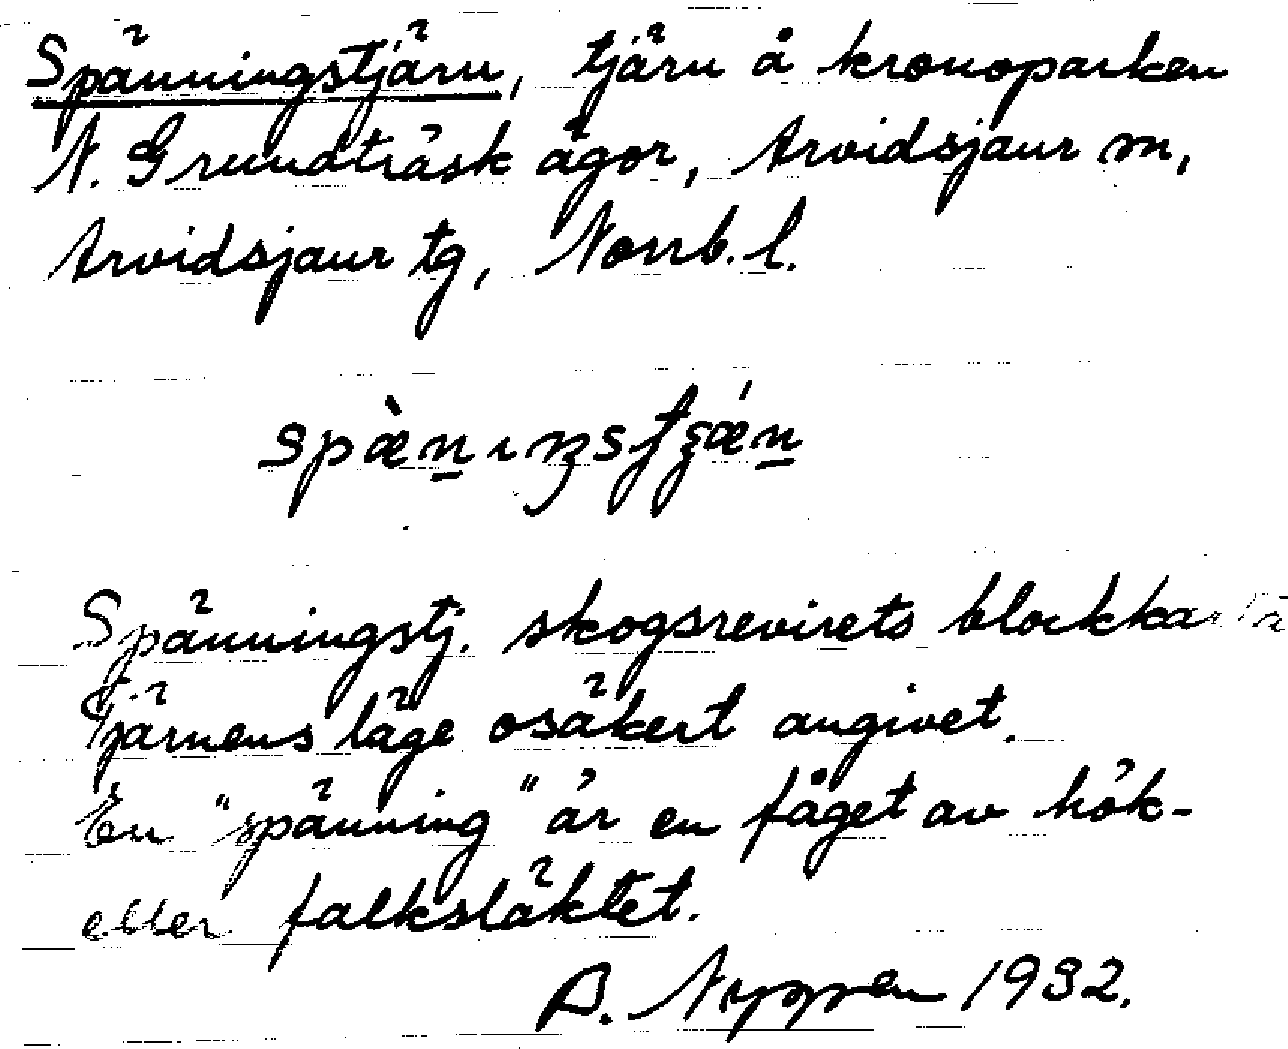 Spänningstjärn, tjärn å kronoparken
N. Grundträsk ägor, Arvidsjaur sn,
Arvidsjaur tg, Norrb. l.
Spänningstj. skogsrevirets blockkarta
Tjärnens läge osäkert angivet.
En "spänning" är en fåget av hök-
eller falksläktet.
1932.